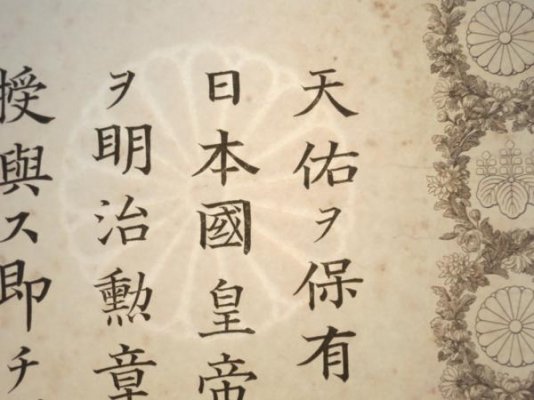 天佑ヲ保有
日本國皇帝
ヲ明治勳章
授與ス即チ